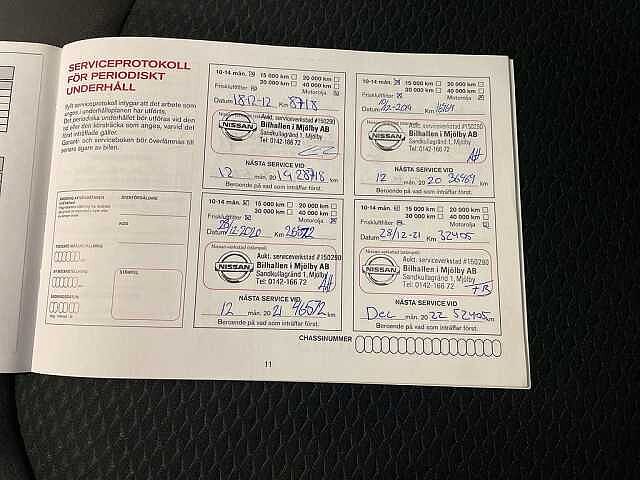 SERVICEPROTOKOLL
FÖR PERIODISKT
UNDERHÅLL
Ifyllt serviceprotokoll intygar att det arbete som
anges i underhållsplanen har utförts.
Det periodiska underhållet bör utföras vid den
tid eller den körsträcka som anges, varvid det
först inträffade gäller.
Garanti- och serviceboken bör överlämnas till
senare ägare av bilen.
10-14 mån. 15 000 km 20 000 km
30 000 km 40 000 km
Friskluftfilter Motorolja
Datum 18-12-12 Km 8718
NISSAN
Aukt. serviceverkstad #150280
Bilhallen i Mjölby AB
Sandkullagränd 1, Mjölby
Tel: 0142-166 72
NÄSTA SERVICE VID
12 mån. 20 19 28718 km
Beroende på vad som inträffar först.
10-14 mån. 15 000 km 20 000 km
30 000 km 40 000 km
Friskluftfilter Motorolja
Datum Km
NISSAN
Aukt. serviceverkstad #150280
Bilhallen i Mjölby AB
Sandkullagränd 1, Mjölby
Tel: 0142-166 72
AH
NÄSTA SERVICE VID
12 mån. 20 20 36969 km
Beroende på vad som inträffar först.
10-14 mån. 15 000 km 20 000 km
30 000 km 40 000 km
Friskluftfilter Motorolja
Datum Km 26572
Nissan-verkstad (stämpel)
NISSAN
Aukt. serviceverkstad #150280
Bilhallen i Mjölby AB
Sandkullagränd 1, Mjölby
Tel: 0142-166 72
AH
NÄSTA SERVICE VID
12 mån. 20 21 46572 km
Beroende på vad som inträffar först.
10-14 mån. 15 000 km 20 000 km
30 000 km 40 000 km
Friskluftfilter Motorolja
Datum 28/12-21 Km 32405
Nissan-verkstad (stämpel)
NISSAN
Aukt. serviceverkstad #150280
Bilhallen i Mjölby AB
Sandkullagränd 1, Mjölby
Tel: 0142-166 72
NÄSTA SERVICE VID
Dec mån. 20 22 52405 km
Beroende på vad som inträffar först.
CHASSINUMMER
11